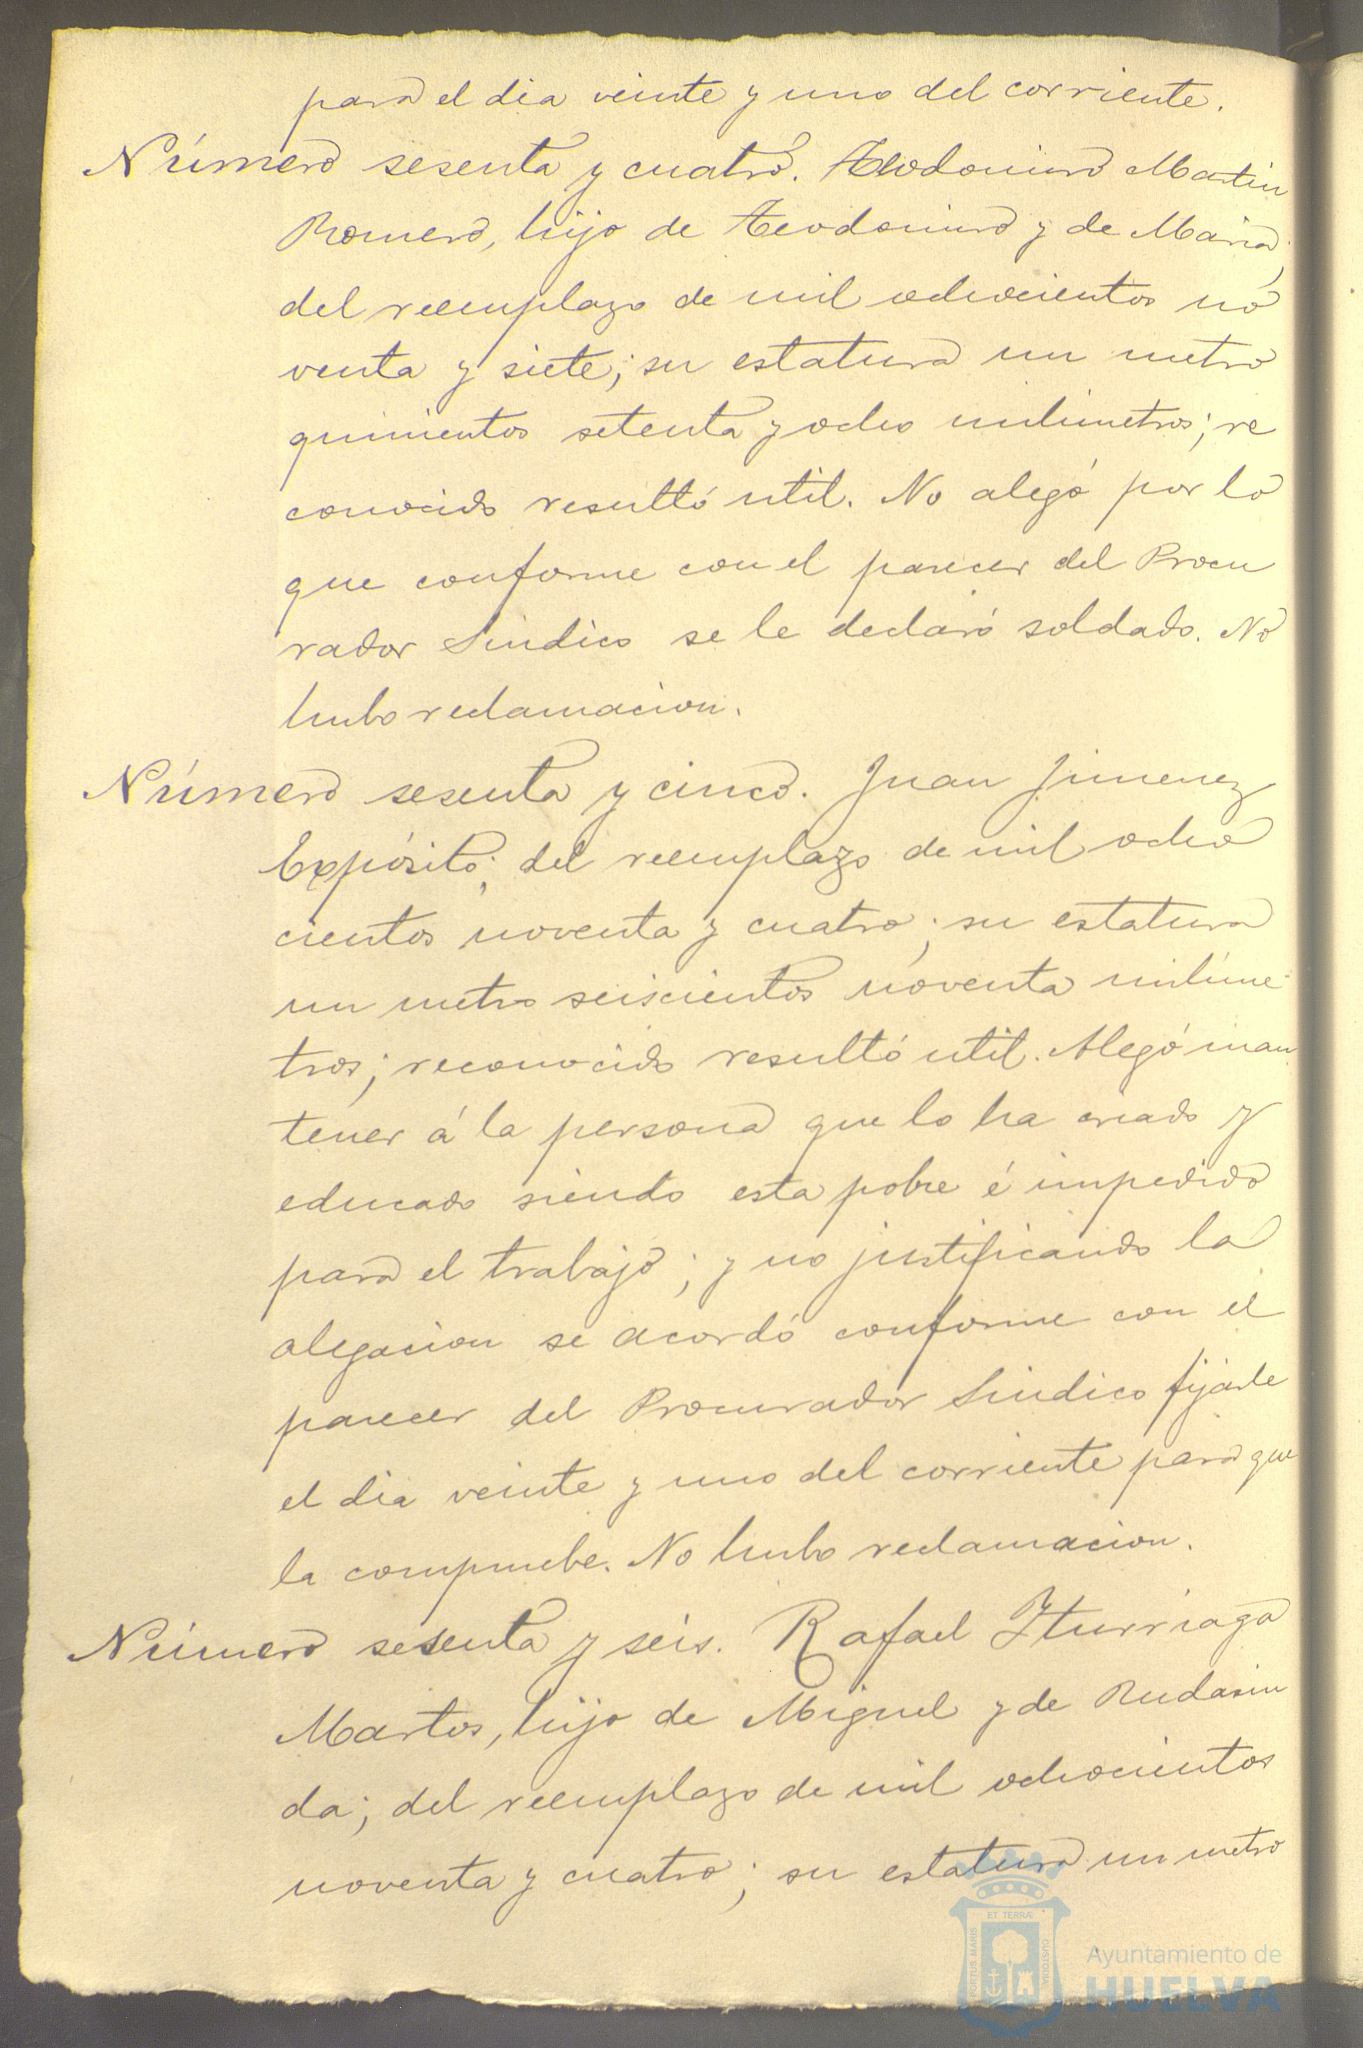 para el dia veinte y uno del corriente.
Número sesenta y cuatro. Teodomiro Martin
Romero, hijo de Teodomiro y de Maria,
del reemplazo de mil ochocientos no
venta y siete; su estatura un metro
quinientos setenta y ocho milimetros; re
conocido resultó util. No alegó por lo
que conforme con el parecer del Procu
rador Sindico se le declaró soldado. No
hubo reclamacion.
Número sesenta y cinco. Juan Jimenez
Expósito; del reemplazo de mil ocho
cientos noventa y cuatro; su estatura
un metro seiscientos noventa milime
tros; reconocido resultó util. Alegó man
tener á la persona que lo ha criado y
educado siendo esta pobre é impedido
para el trabajo; y no justificando la
alegacion se acordó conforme con el
parecer del Procurador Sindico fijarle
el dia veinte y uno del corriente para que
la compruebe. No hubo reclamacion.
Número sesenta y seis. Rafael Iturriaga
Martos, hijo de Miguel y de Rudasin
da; del reemplazo de mil ochocientos
noventa y cuatro; su estatura un metro
ET TERRÆ
PORTUS MARIS
CUSTODIA
Ayuntamiento de
HUELVA